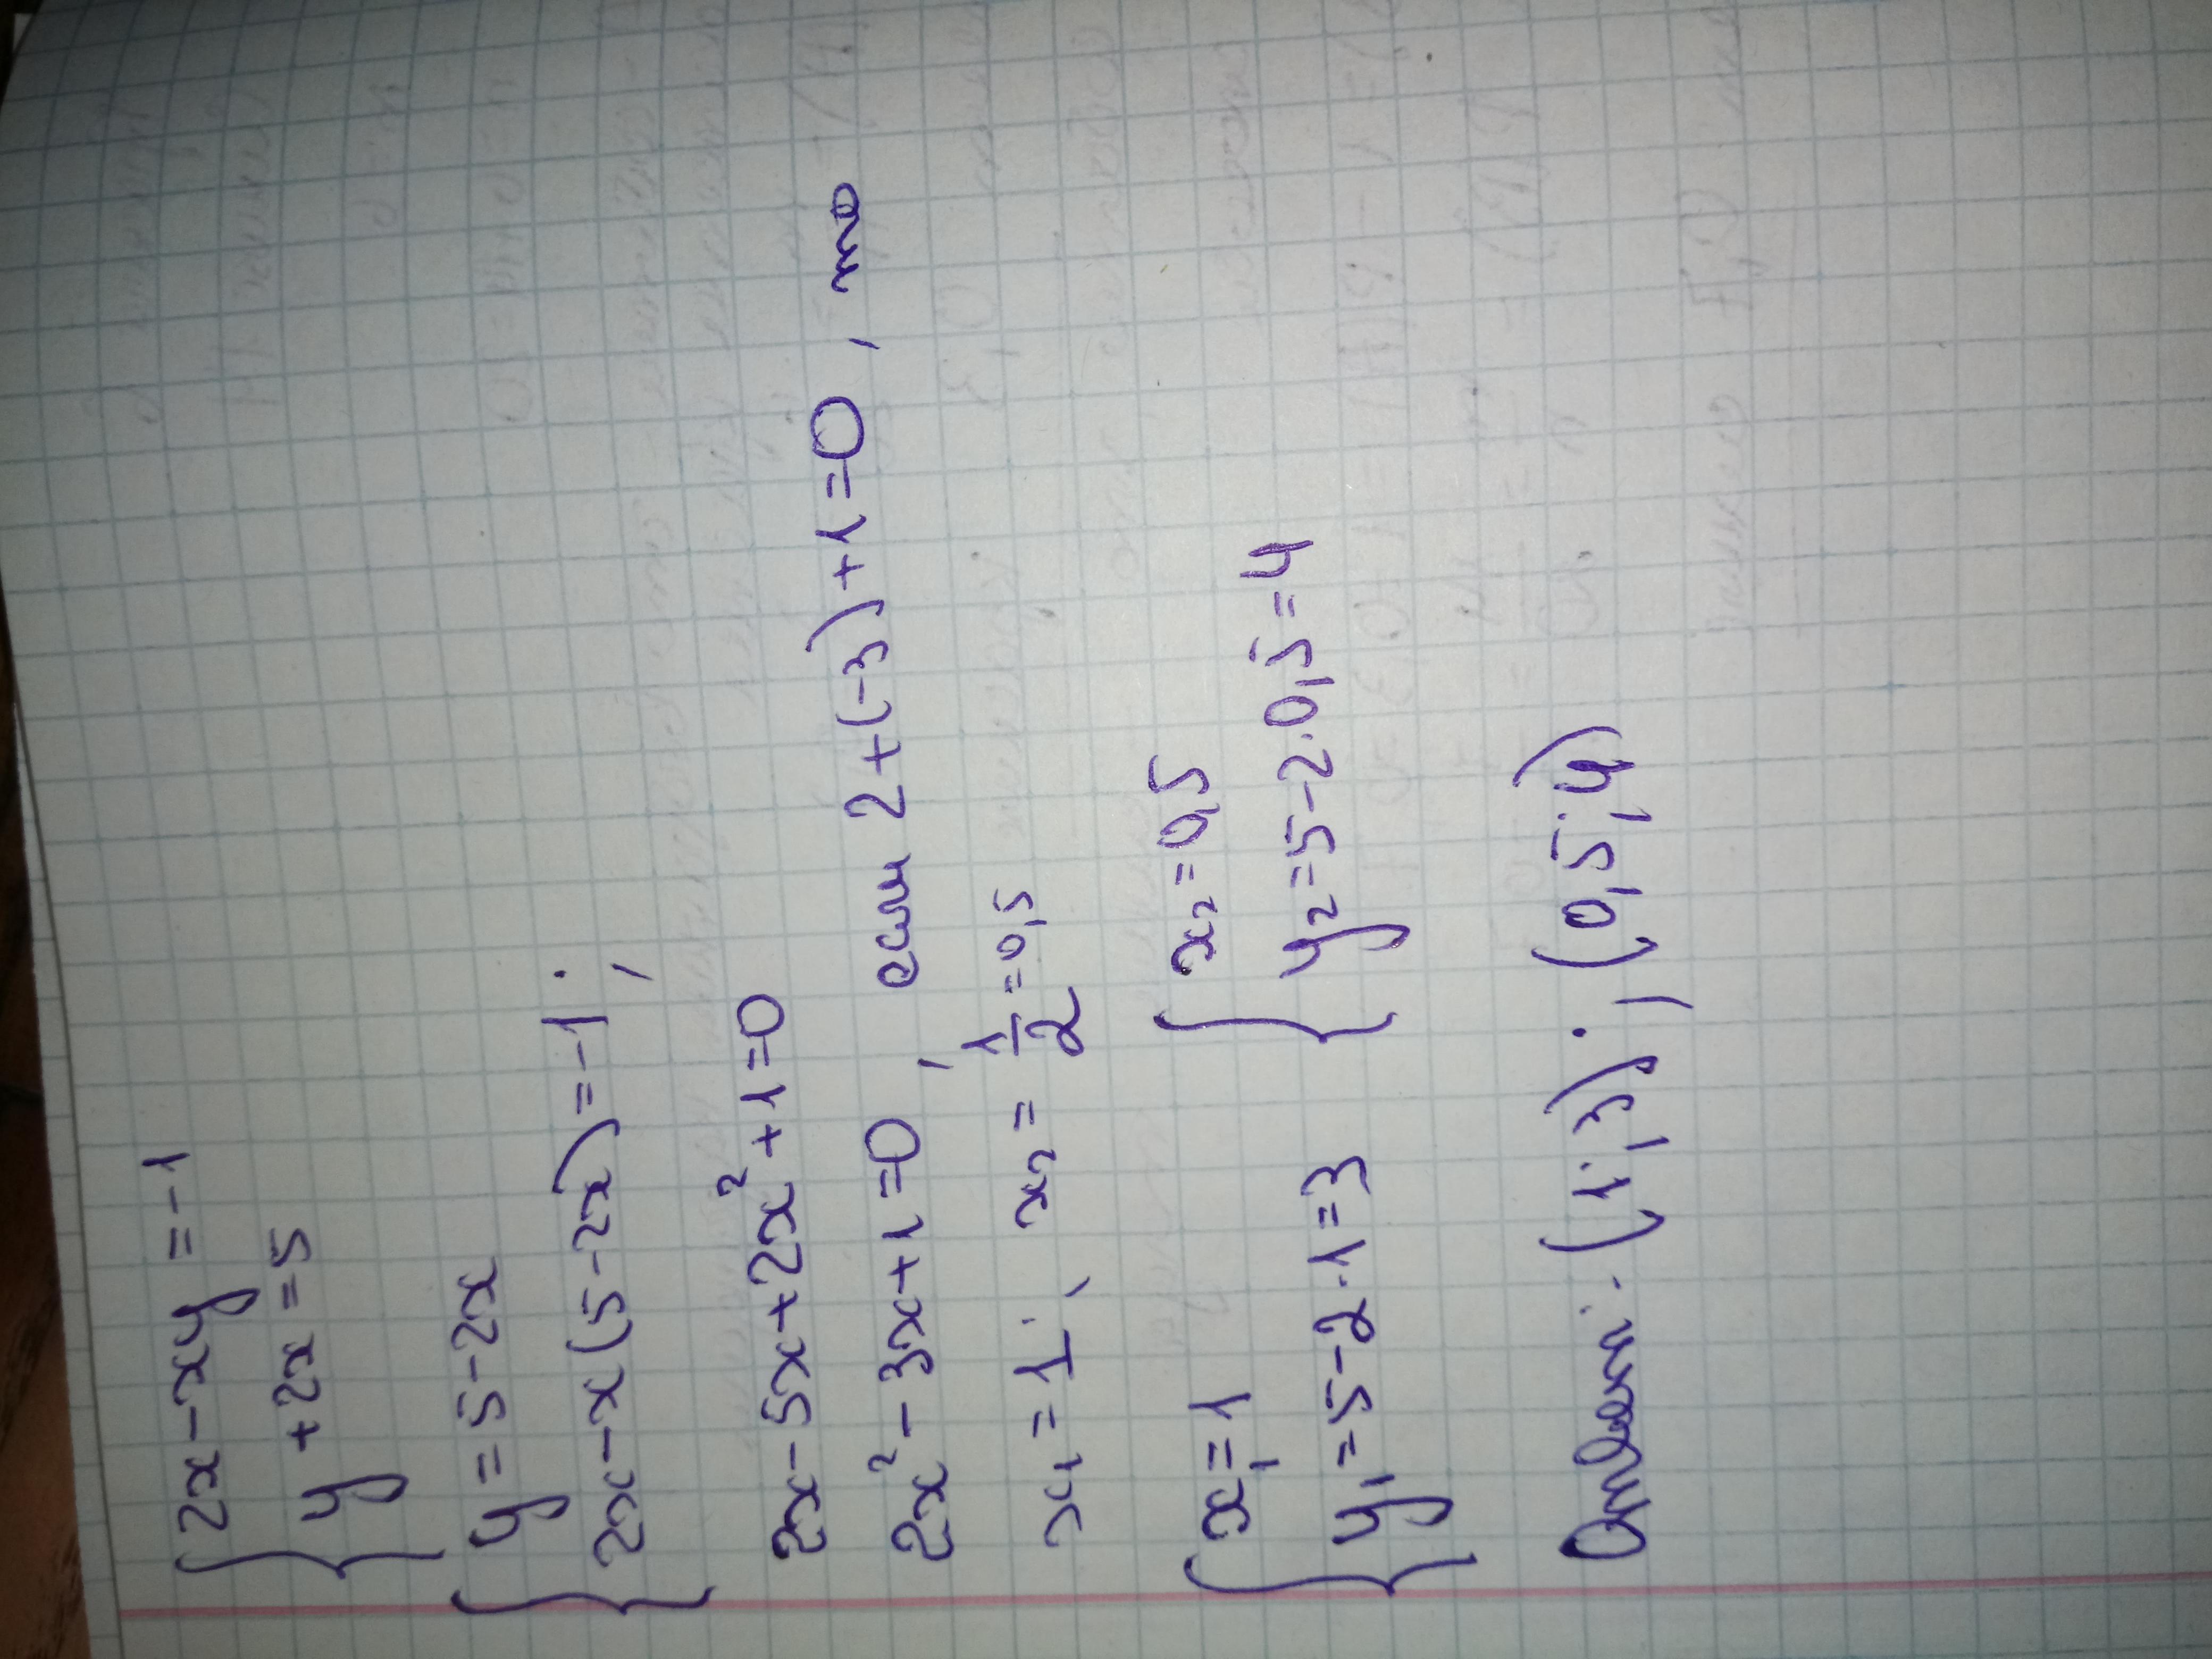 {2x-xy=-1
y+2x=5
{y=5-2x
2x-x(5-2x)=-1;
2x-5x+2x²+1=0
2x²-3x+1=0, если 2+(-3)+1=0, то
x₁=1; x₂=1/2=0,5
{x₁=1 {x₂=0,5
y₁=5-2·1=3 y₂=5-2·0,5=4
Ответ: (1;3); (0,5;4)